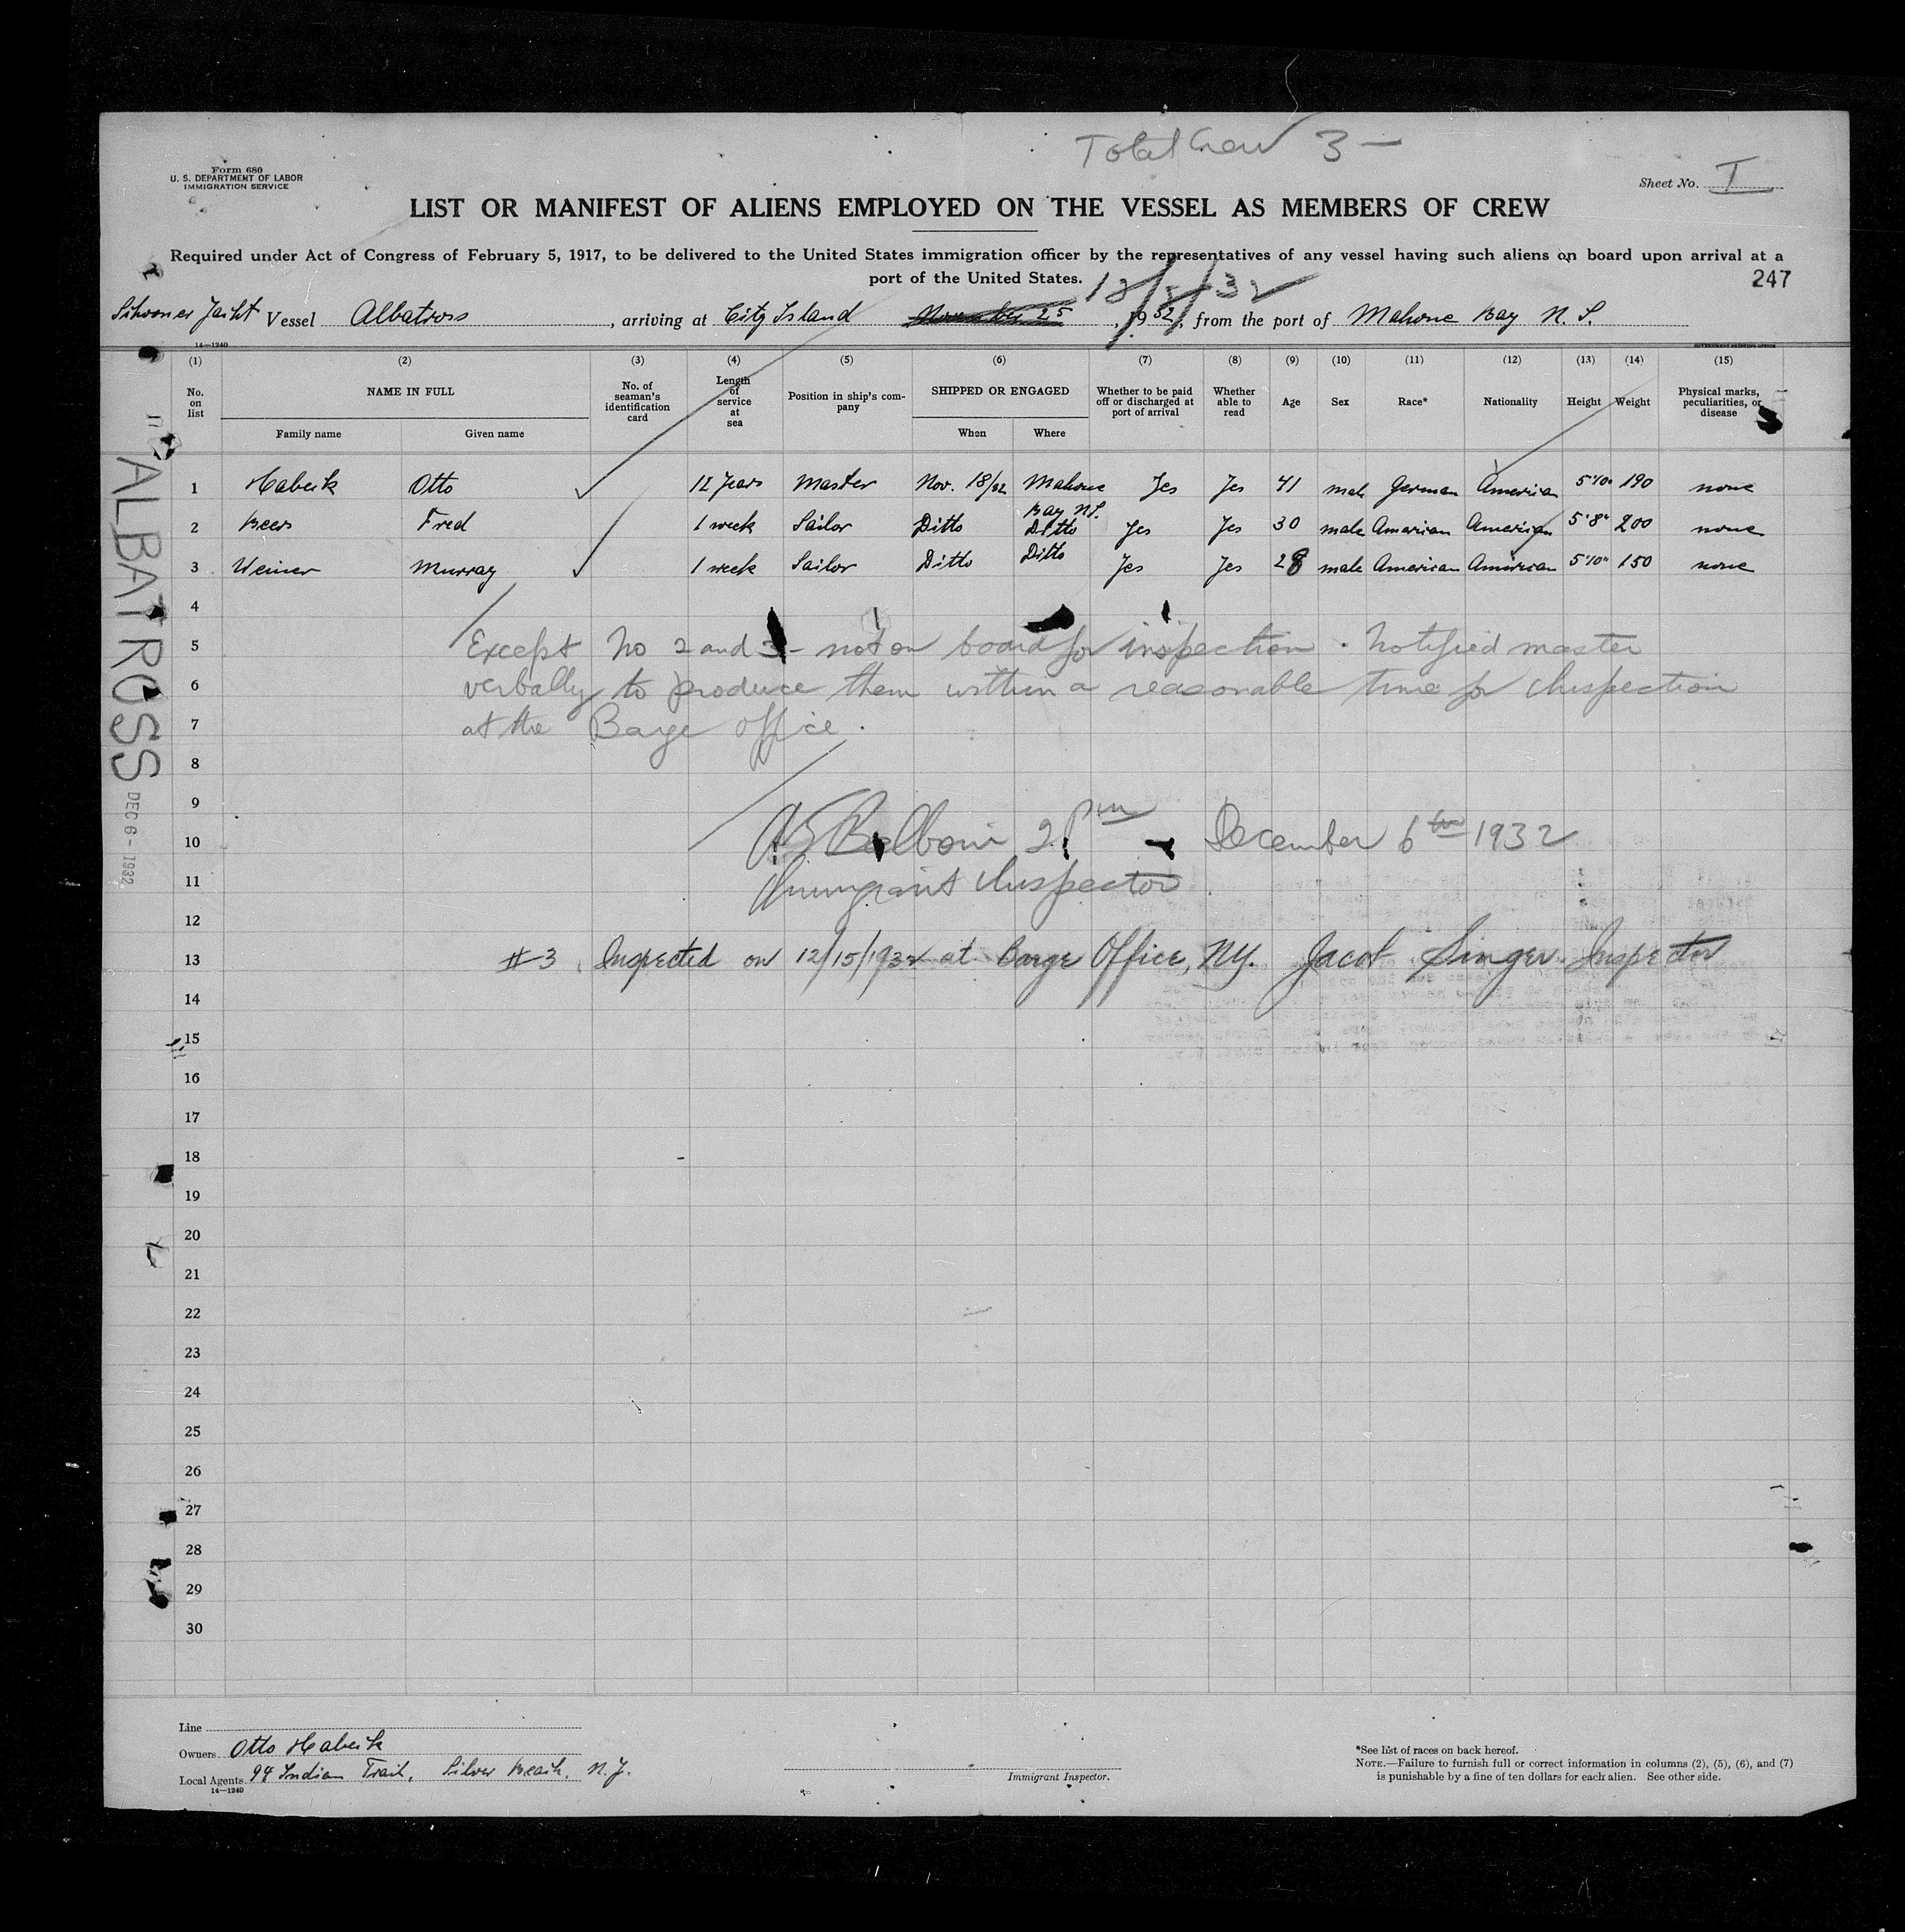 Total Crew 3 —
Form 680
U. S. DEPARTMENT OF LABOR
IMMIGRATION SERVICE
Sheet No. I
LIST OR MANIFEST OF ALIENS EMPLOYED ON THE VESSEL AS MEMBERS OF CREW
Required under Act of Congress of February 5, 1917, to be delivered to the United States immigration officer by the representatives of any vessel having such aliens on board upon arrival at a
port of the United States.
247
Schooner Yacht Vessel Albatross, arriving at City Island November 25, 1932, from the port of Mahone Bay N. S.
14—1240
GOVERNMENT PRINTING OFFICE
(1) (2) (3) (4) (5) (6) (7) (8) (9) (10) (11) (12) (13) (14) (15)
No. on list NAME IN FULL No. of seaman's identification card Length of service at sea Position in ship's company SHIPPED OR ENGAGED Whether to be paid off or discharged at port of arrival Whether able to read Age Sex Race* Nationality Height Weight Physical marks, peculiarities, or disease
Family name Given name When Where
1 Habeck Otto 12 Years Master Nov. 18/32 Mahone Bay N.S. Yes Yes 41 male German American 5'10" 190 none
2 Beers Fred 1 week Sailor Ditto Ditto Yes Yes 30 male American American 5'8" 200 none
3 Weiner Murray 1 week Sailor Ditto Ditto Yes Yes 28 male American American 5'10" 150 none
4
5 Except No 2 and 3 - not on board for inspection. Notified master
6 verbally to produce them within a reasonable time for Inspection
7 at the Barge office.
8
9
10 2 pm December 6th 1932
11 Immigrant Inspector
12
13 #3 Inspected on 12/15/1932 at Barge Office, NY. Jacob Singer Inspector
14
15
16
17
18
19
20
21
22
23
24
25
26
27
28
29
30
ALBATROSS
DEC 6 - 1932
Line
Owners Otto Habeck
Local Agents 94 Indian Trail, Silver Beach, N.Y.
14—1240
Immigrant Inspector.
*See list of races on back hereof.
NOTE.—Failure to furnish full or correct information in columns (2), (5), (6), and (7)
is punishable by a fine of ten dollars for each alien. See other side.